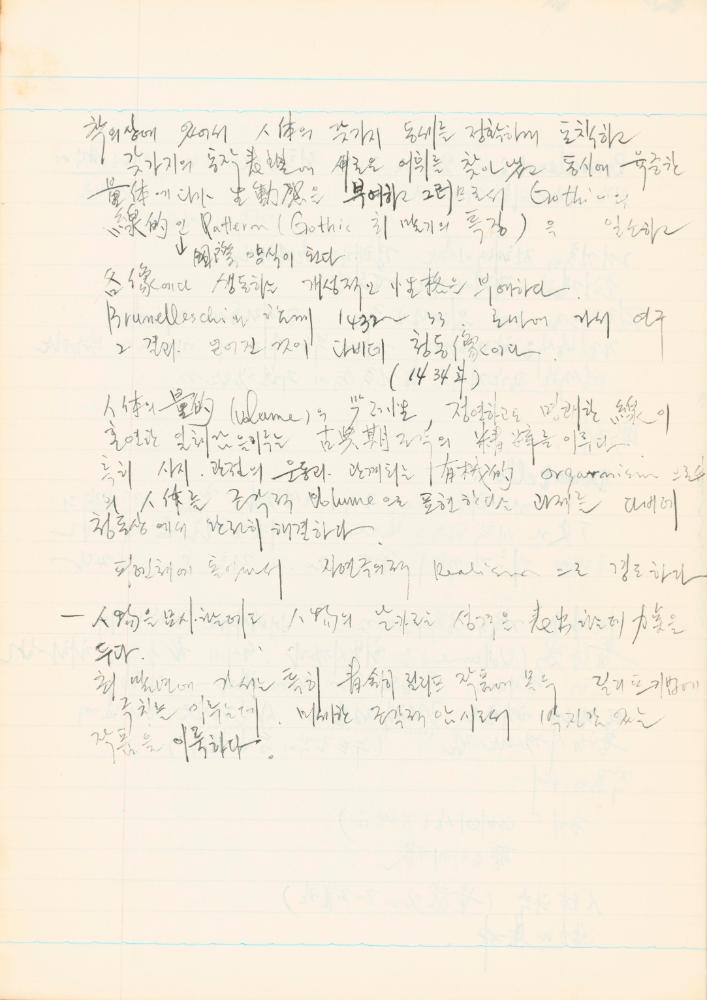 착의상에 있어서 人体의 갖가지 동세를 정확하게 포착하고
갖가지의 동작表現에 새로운 어휘를 찾아내고 동시에 육중한
量体에다가 生動感을 부여하고 그럼므로서 Gothic의
線的인 Pattern (Gothic 최 말기의 특징)을 일소하고
↓ 國際양식이 된다
各像에다 생동하는 개성적인 性格을 부여하다.
Brunelleschi와 함께 1432~33. 로마에 가서 연구
그 결과. 얻어진 것이 다비데 청동像이다.
(1434年)
人体의 量的 (Volume)의 정연하고도 명쾌한 線이
혼연한 일체감을 이루는 古典期 조각의 를 이루다
특히 사지. 관절의 운동과 관계되는 有機的 organism으로
의 人体를 조각적 Volume으로 표현한다는 과제를 다비데
청동상에서 완전히 해결하다.
피렌체에 돌아와서 자연주의적 Realism으로 경도하다
— 人物을 묘사하는데도 人物의 날카로운 성격을 表出하는데 力点을
두다.
최 말년에 가서는 특히 릴리프 작품에 몰두 릴리프 기법에
극치를 이루는데. 미세한 조각적 암시로서 박진감 있는
작품을 이룩하다.